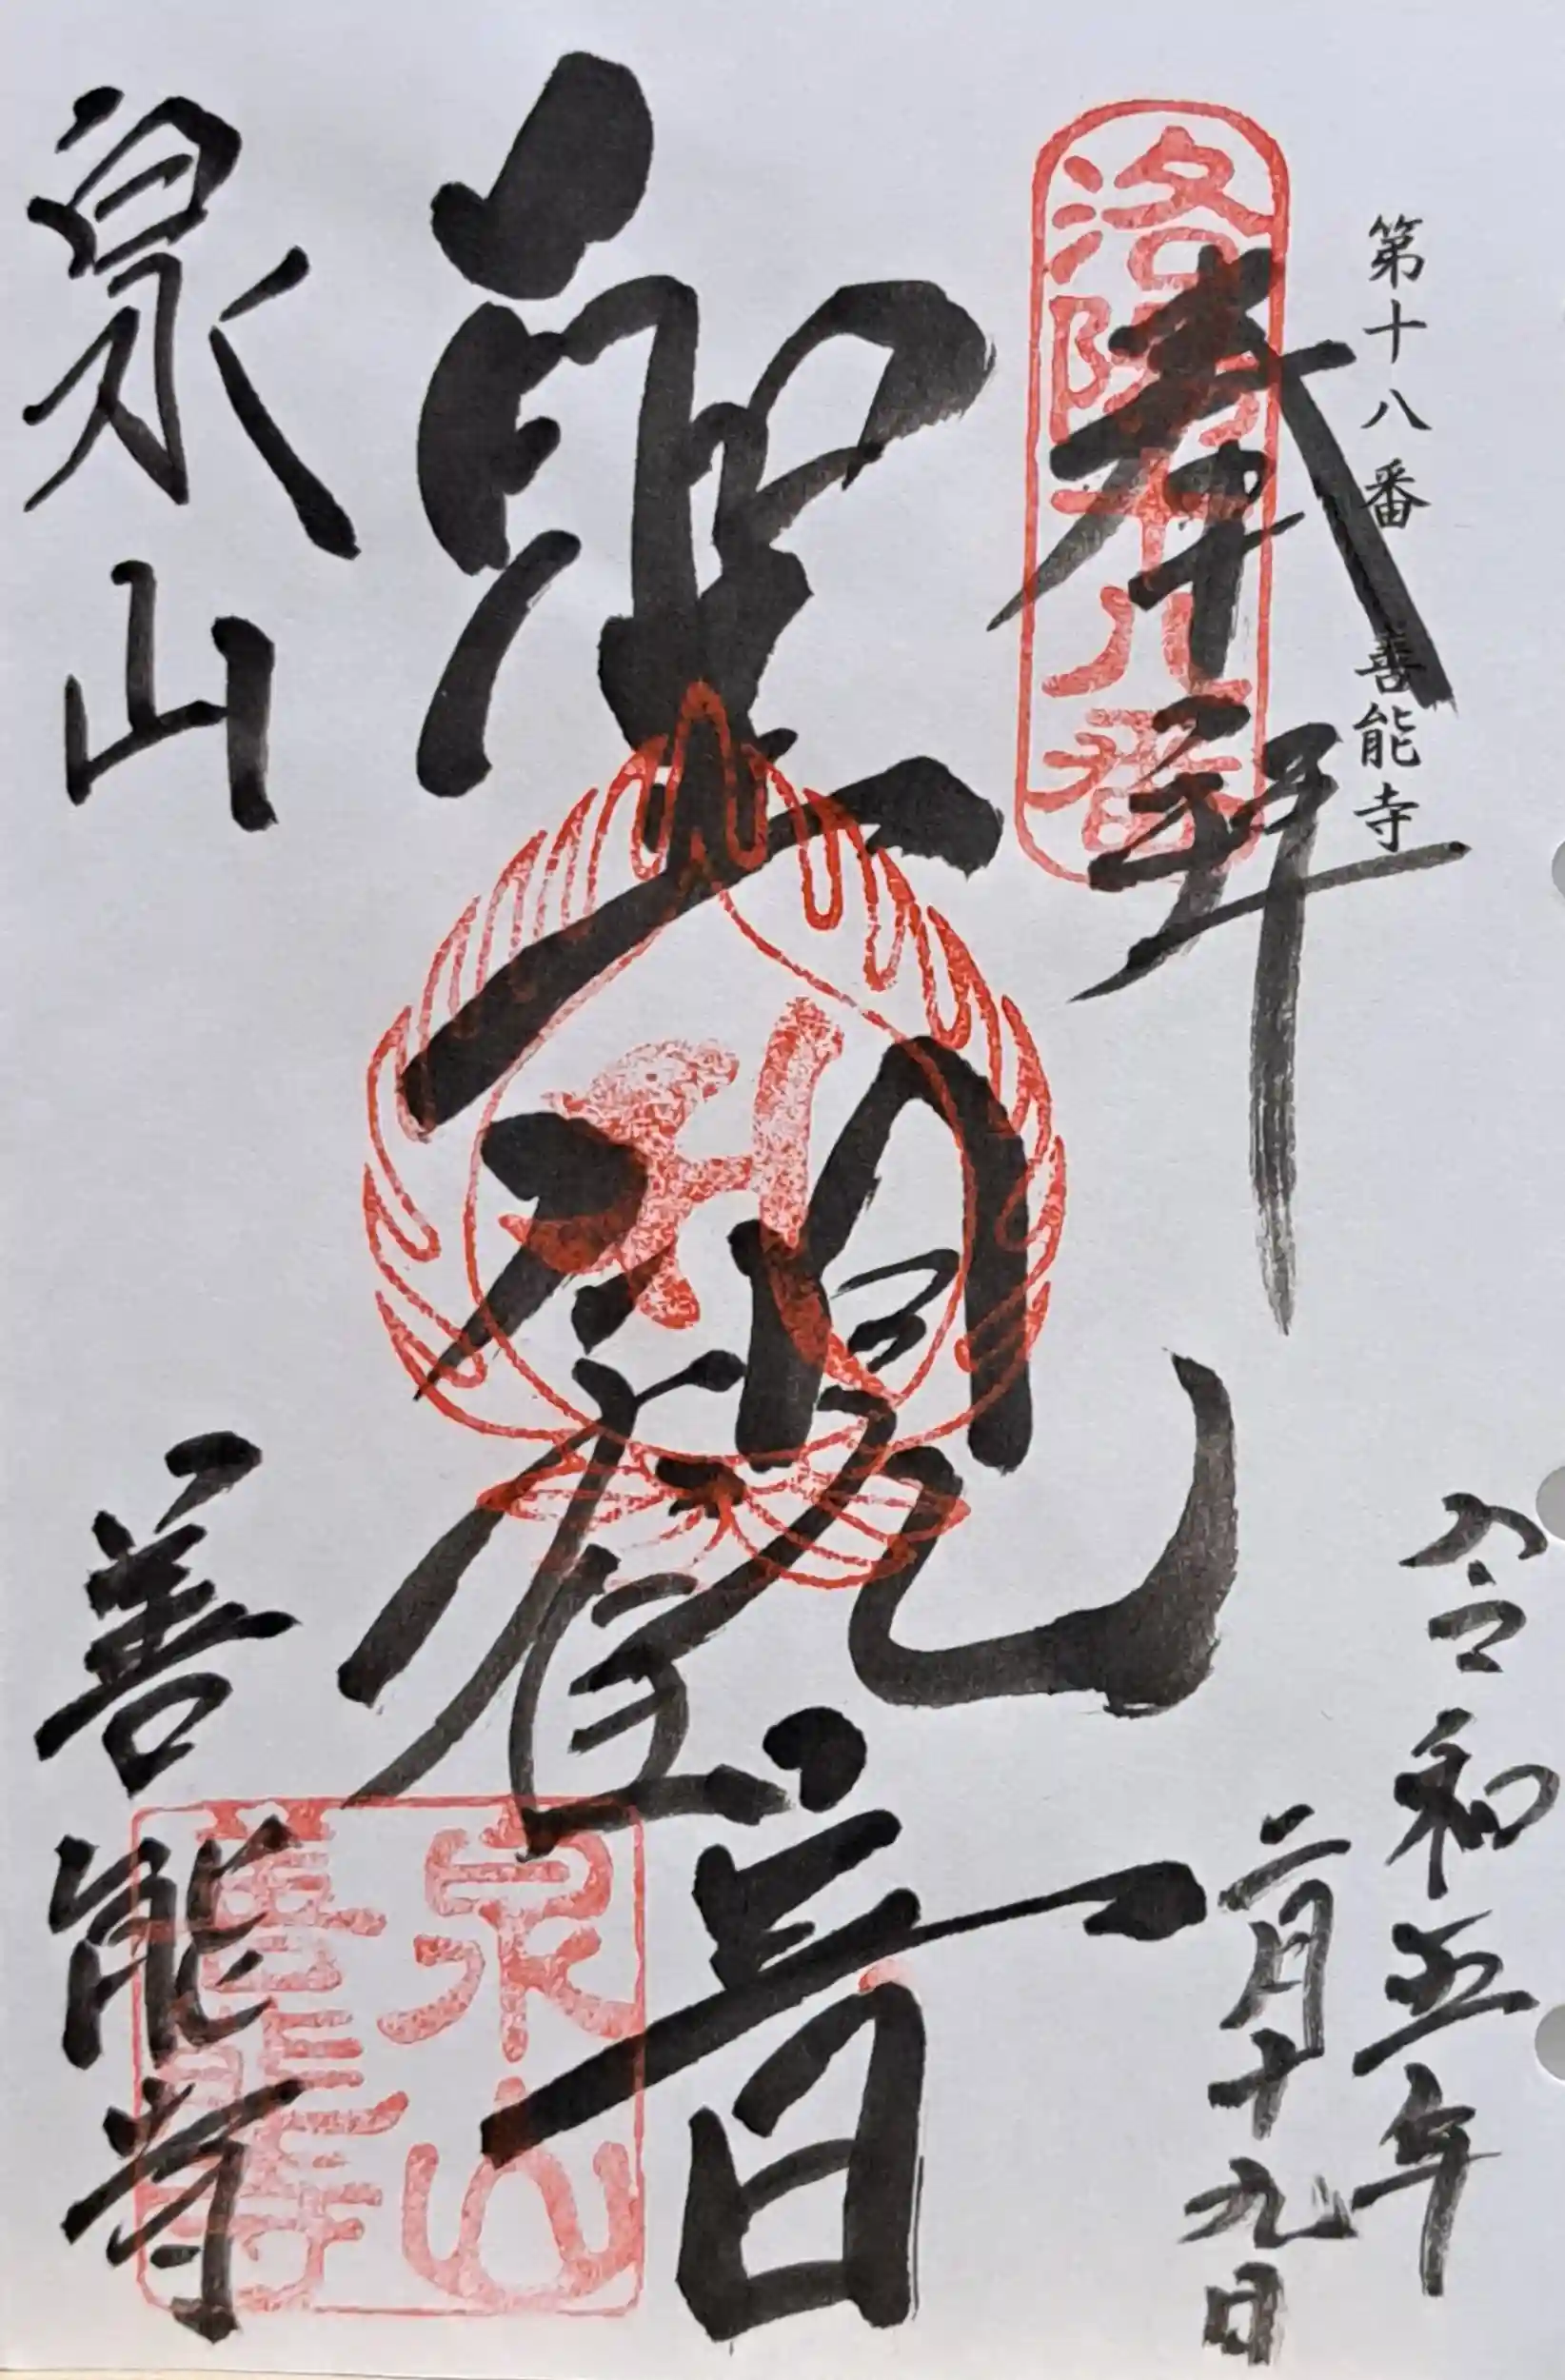 第十八番 善能寺
洛陽十八番
奉拝
令和五年
二月十九日
聖観世音
泉山
善能寺
泉山
善能寺